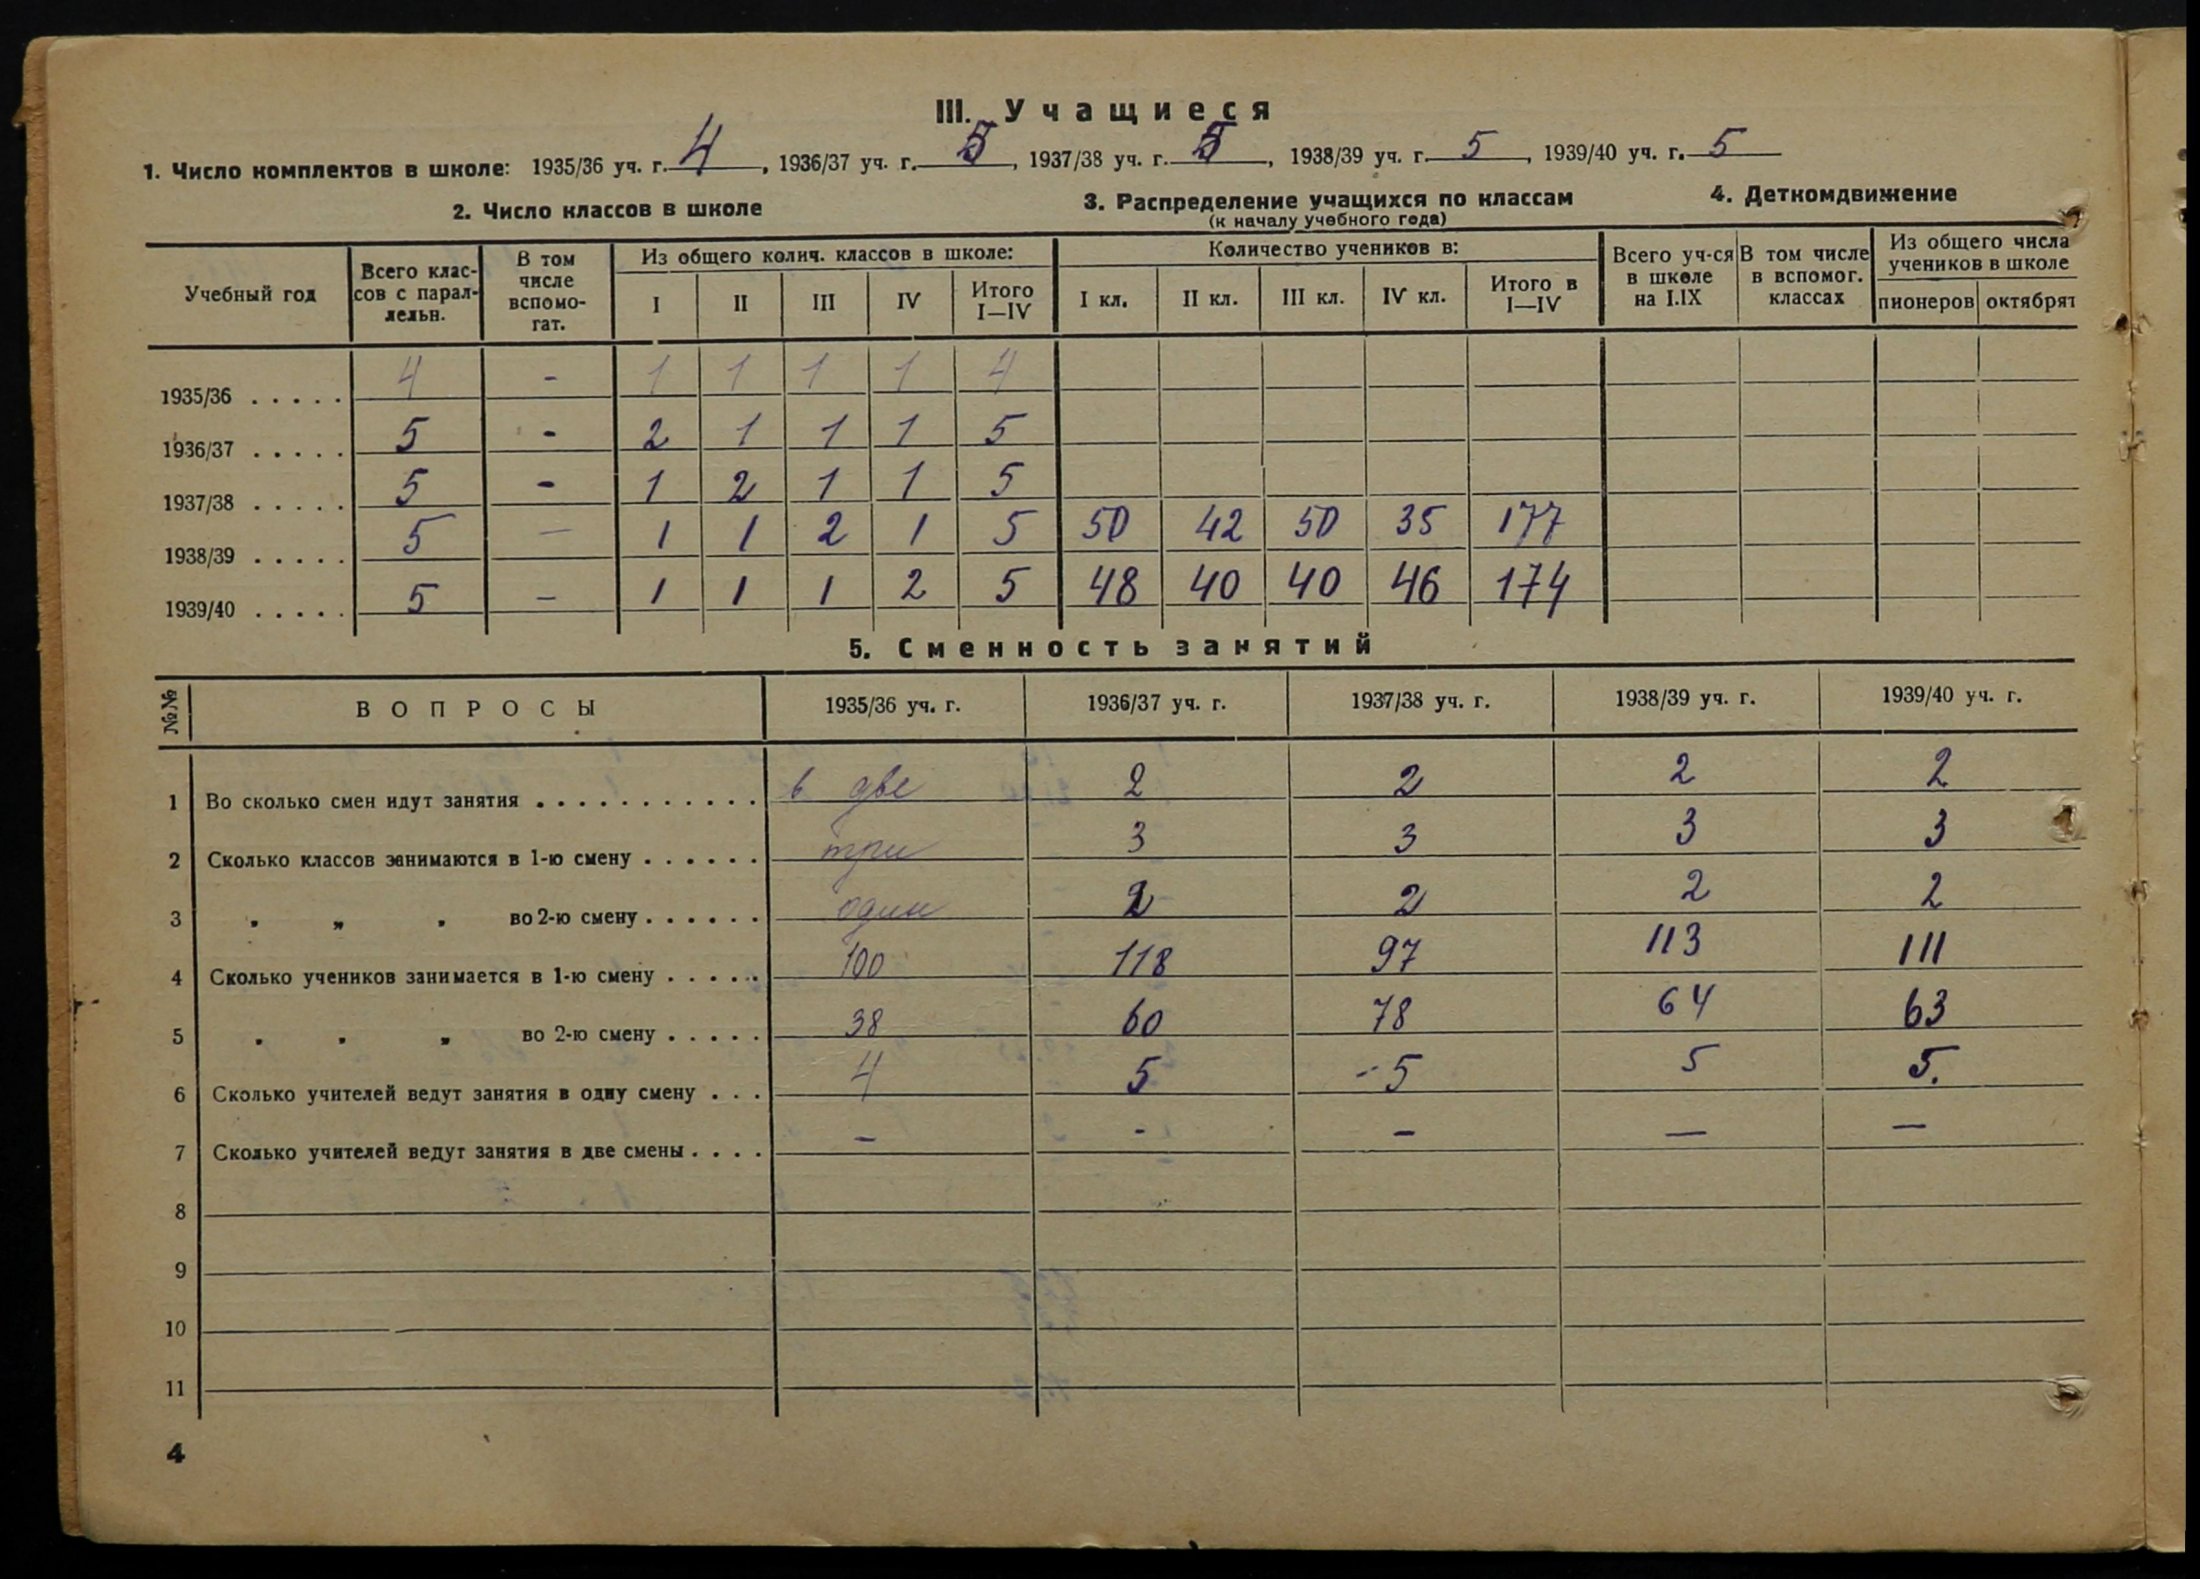 III. Учащиеся
1. Число комплектов в школе: 1935/36 уч. г. 4, 1936/37 уч. г. 5, 1937/38 уч. г. 5, 1938/39 уч. г. 5, 1939/40 уч. г. 5
2. Число классов в школе 3. Распределение учащихся по классам 4. Деткомдвижение
(к началу учебного года)
Учебный год Всего классов с параллельн. В том числе вспомогат. Из общего колич. классов в школе: I II III IV Итого I—IV Количество учеников в: I кл. II кл. III кл. IV кл. Итого в I—IV Всего уч-ся в школе на I.IX В том числе в вспомог. классах Из общего числа учеников в школе пионеров октябрят
1935/36 . . . . . 4 - 1 1 1 1 4
1936/37 . . . . . 5 - 2 1 1 1 5
1937/38 . . . . . 5 - 1 2 1 1 5
1938/39 . . . . . 5 — 1 1 2 1 5 50 42 50 35 177
1939/40 . . . . . 5 — 1 1 1 2 5 48 40 40 46 174
5. Сменность занятий
№№ ВОПРОСЫ 1935/36 уч. г. 1936/37 уч. г. 1937/38 уч. г. 1938/39 уч. г. 1939/40 уч. г.
1 Во сколько смен идут занятия . . . . . . . . . . . в две 2 2 2 2
2 Сколько классов занимаются в 1-ю смену . . . . . . три 3 3 3 3
3 " „ " во 2-ю смену . . . . . . один 2 2 2 2
4 Сколько учеников занимается в 1-ю смену . . . . . 100 118 97 113 111
5 " " „ во 2-ю смену . . . . . 38 60 78 64 63
6 Сколько учителей ведут занятия в одну смену . . . 4 5 - 5 5 5.
7 Сколько учителей ведут занятия в две смены . . . . — - — — —
8
9
10
11
4